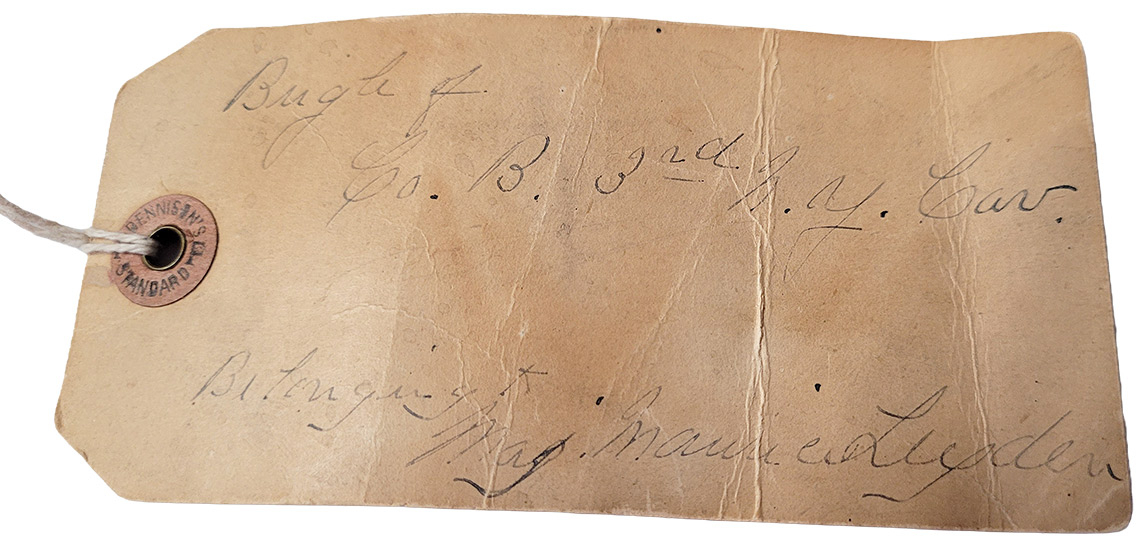 Bugle of
Co. B. 3rd N.Y. Cav.
DENNISON'S
STANDARD
Belonging to
Maj. Maurice Leyden